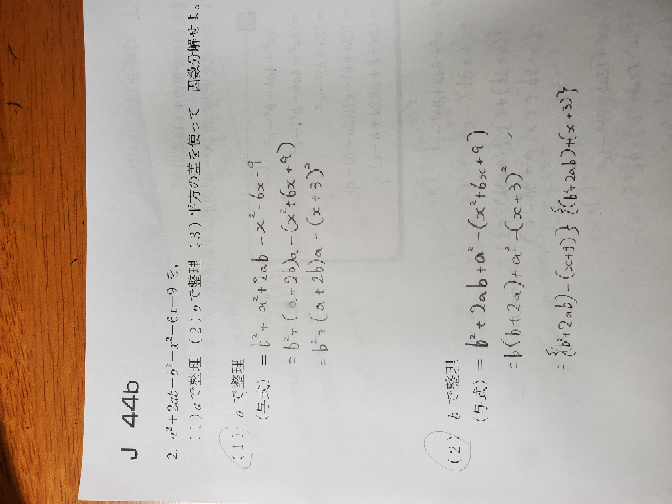 J 44b
2. a²+2ab+b²-x²-6x-9 を,
(1) a で整理 (2) b で整理 (3) 平方の差を使って 因数分解せよ。
(1) a で整理
(与式) = b²+a²+2ab-x²-6x-9
= b²+(a+2b)a-(x²+6x+9)
= b²+(a+2b)a-(x+3)²
(2) b で整理
(与式) = b²+2ab+a²-(x²+6x+9)
= b(b+2a)+a²-(x+3)²
= {(b²+2ab)-(x+3)} {(b²+2ab)+(x+3)}